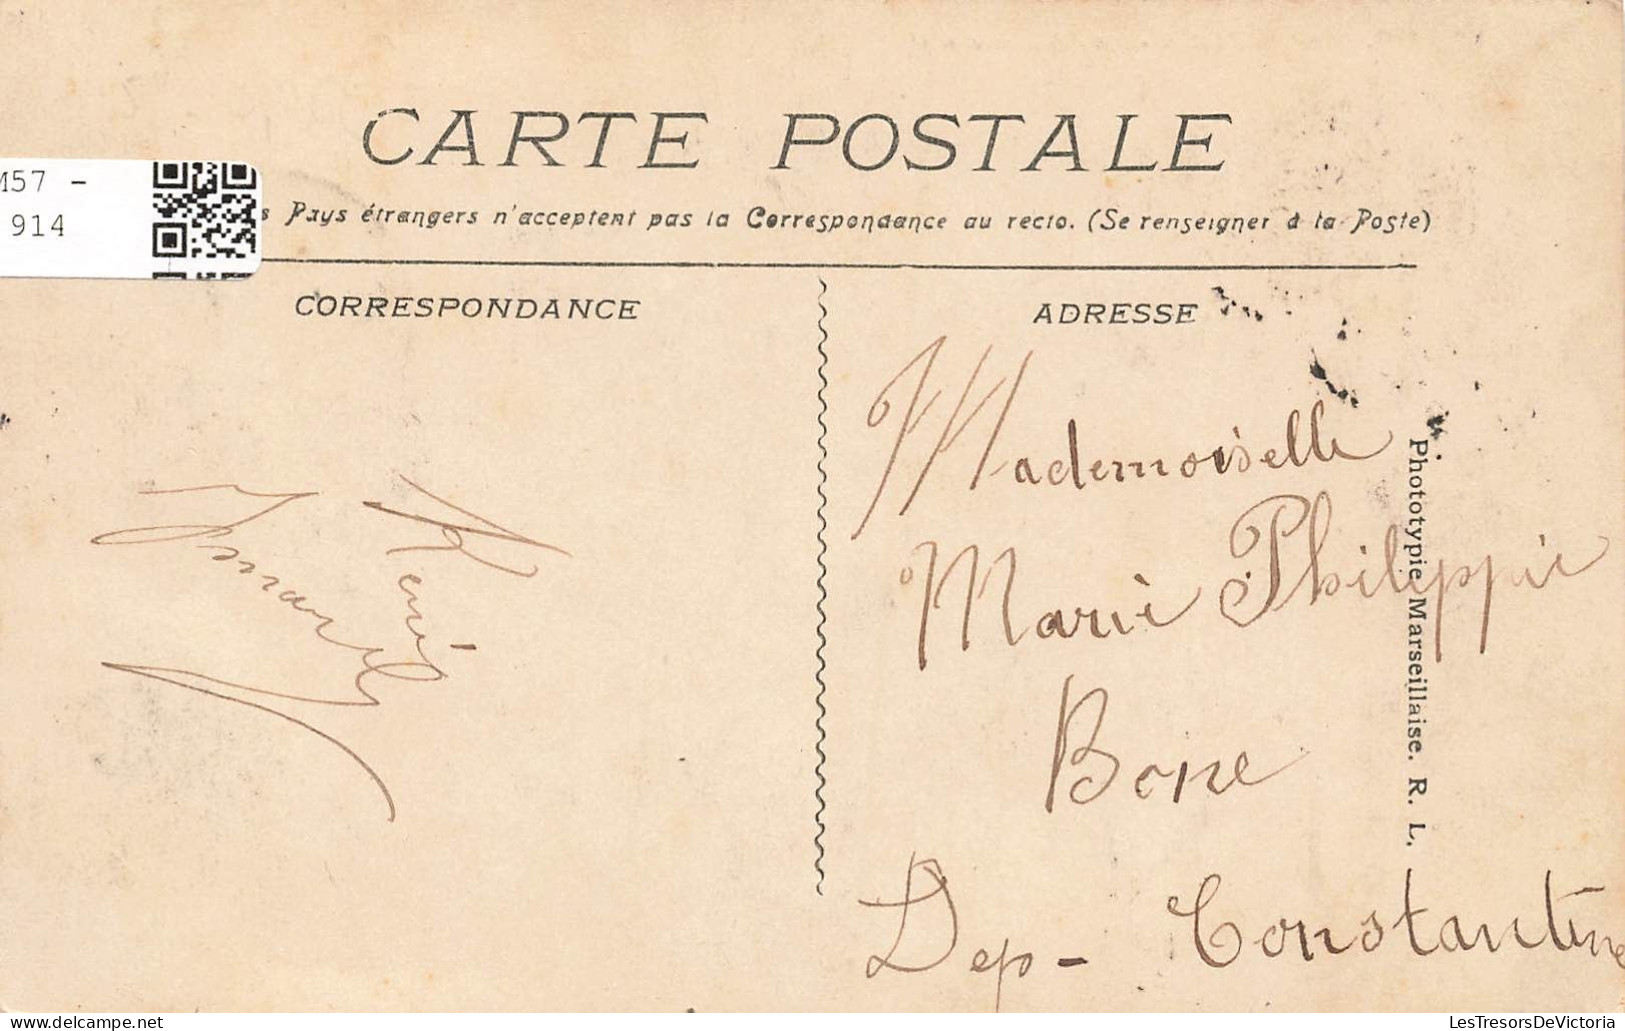 CARTE POSTALE
M57 -
914
Pays étrangers n'acceptent pas la Correspondance au recto. (Se renseigner à la Poste)
CORRESPONDANCE
ADRESSE
René
Mademoiselle
Marie Philippie
Bone
Dep - Constantine
Phototypie Marseillaise. R. L.
LesTresorsDeVictoria